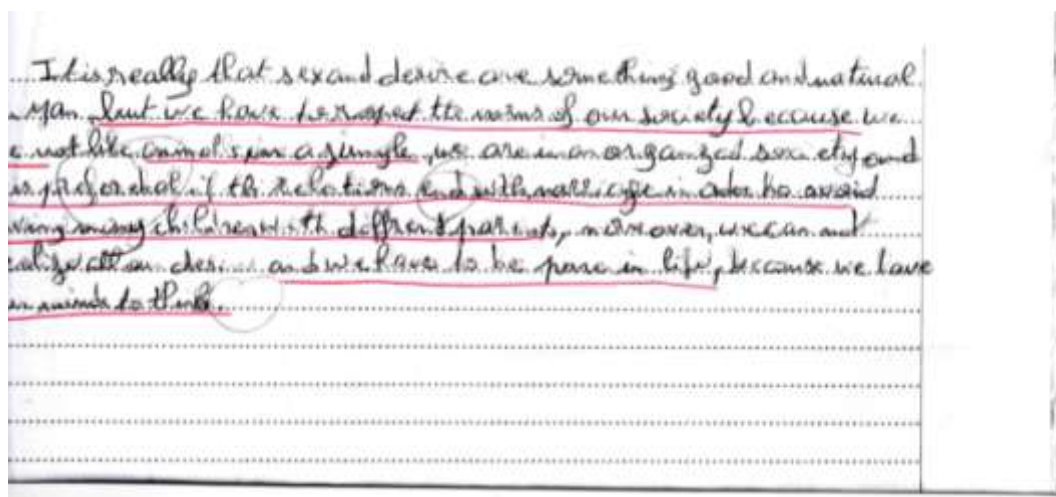 It is really that sex and desire are something good and natural
man but we have to respect the norms of our society because we
not like animals in a jungle, we are in an organized society and
is preferabal if the relations end with marriage in order to avoid
ving many children with diffrent parents, moreover, we can not
all our and we have to be pure in life, because we have
minds to think.